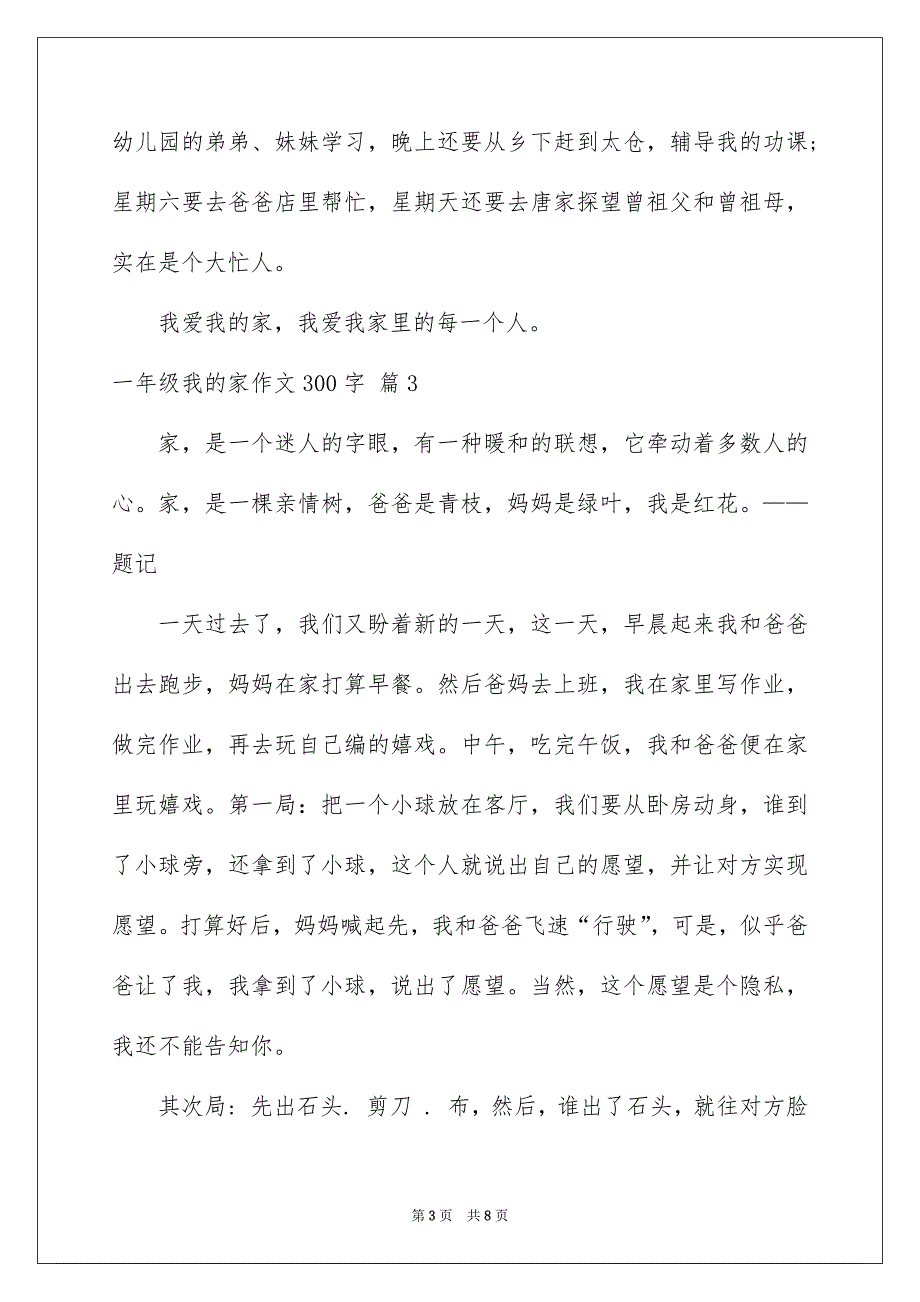 幼儿园的弟弟、妹妹学习，晚上还要从乡下赶到太仓，辅导我的功课;
星期六要去爸爸店里帮忙，星期天还要去唐家探望曾祖父和曾祖母，
实在是个大忙人。
我爱我的家，我爱我家里的每一个人。
一年级我的家作文 300 字 篇 3
家，是一个迷人的字眼，有一种暖和的联想，它牵动着多数人的
心。家，是一棵亲情树，爸爸是青枝，妈妈是绿叶，我是红花。——
题记
一天过去了，我们又盼着新的一天，这一天，早晨起来我和爸爸
出去跑步，妈妈在家打算早餐。然后爸妈去上班，我在家里写作业，
做完作业，再去玩自己编的嬉戏。中午，吃完午饭，我和爸爸便在家
里玩嬉戏。第一局：把一个小球放在客厅，我们要从卧房动身，谁到
了小球旁，还拿到了小球，这个人就说出自己的愿望，并让对方实现
愿望。打算好后，妈妈喊起先，我和爸爸飞速“行驶”，可是，似乎爸
爸让了我，我拿到了小球，说出了愿望。当然，这个愿望是个隐私，
我还不能告知你。
其次局：先出石头．剪刀 ．布，然后，谁出了石头，就往对方脸
第 3 页 共 8 页